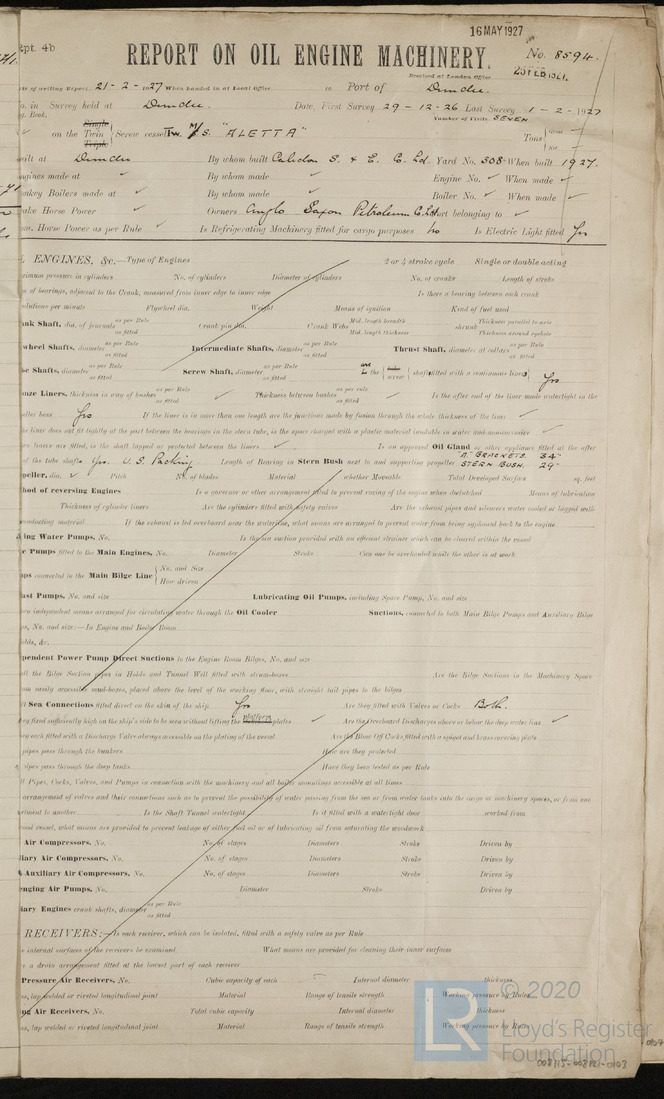 16 MAY 1927
Rpt. 4b
REPORT ON OIL ENGINE MACHINERY.
No. 8594.
Received at London Office
23 FEB 1927
te of writing Report 21-2-1927 When handed in at Local Office 19 Port of Dundee.
o. in Survey held at Dundee. Date, First Survey 29-12-26 Last Survey 1-2-1927
g. Book. Number of Visits SEVEN
on the Single Twin Triple Screw vessel Tw. M/S. "ALETTA" Tons Gross Net
uilt at Dundee By whom built Caledon S. & E. Co. Ld. Yard No. 308 When built 1927.
ngines made at By whom made Engine No. When made
nkey Boilers made at By whom made Boiler No. When made
ake Horse Power Owners Anglo Saxon Petroleum Co. Ld. Port belonging to
om. Horse Power as per Rule Is Refrigerating Machinery fitted for cargo purposes No Is Electric Light fitted Yes
L ENGINES, &c.—Type of Engines 2 or 4 stroke cycle Single or double acting
ximum pressure in cylinders No. of cylinders Diameter of cylinders No. of cranks Length of stroke
n of bearings, adjacent to the Crank, measured from inner edge to inner edge Is there a bearing between each crank
olutions per minute Flywheel dia. Weight Means of ignition Kind of fuel used
ank Shaft, dia. of journals as per Rule as fitted Crank pin dia. Crank Webs Mid. length breadth Mid. length thickness shrunk Thickness parallel to axis Thickness around eyehole
wheel Shafts, diameter as per Rule as fitted Intermediate Shafts, diameter as per Rule as fitted Thrust Shaft, diameter at collars as per Rule as fitted
be Shafts, diameter as per Rule as fitted Screw Shaft, diameter as per Rule as fitted Is the tube screw shaft fitted with a continuous liner Yes
onze Liners, thickness in way of bushes as per Rule as fitted Thickness between bushes as per rule as fitted Is the after end of the liner made watertight in the
peller boss Yes If the liner is in more than one length are the junctions made by fusion through the whole thickness of the liner
he liner does not fit tightly at the part between the bearings in the stern tube, is the space charged with a plastic material insoluble in water and non-corrosive
wo liners are fitted, is the shaft lapped or protected between the liners Is an approved Oil Gland or other appliance fitted at the after
of the tube shaft Yes. U.S. Packing Length of Bearing in Stern Bush next to and supporting propeller "A" BRACKETS. 34" STERN BUSH. 29"
peller, dia. Pitch No. of blades Material whether Moveable Total Developed Surface sq. feet
hod of reversing Engines Is a governor or other arrangement fitted to prevent racing of the engine when declutched Means of lubrication
Thickness of cylinder liners Are the cylinders fitted with safety valves Are the exhaust pipes and silencers water cooled or lagged with
conducting material If the exhaust is led overboard near the waterline, what means are arranged to prevent water from being syphoned back to the engine
ling Water Pumps, No. Is the sea suction provided with an efficient strainer which can be cleared within the vessel
e Pumps fitted to the Main Engines, No. Diameter Stroke Can one be overhauled while the other is at work
ps connected to the Main Bilge Line No. and Size How driven
ast Pumps, No. and size Lubricating Oil Pumps, including Spare Pump, No. and size
wo independent means arranged for circulating water through the Oil Cooler Suctions, connected to both Main Bilge Pumps and Auxiliary Bilge
ps, No. and size:—In Engine and Boiler Room
olds, &c.
ependent Power Pump Direct Suctions to the Engine Room Bilges, No. and size
ll the Bilge Suction pipes in Holds and Tunnel Well fitted with strum-boxes Are the Bilge Suctions in the Machinery Space
om easily accessible mud-boxes, placed above the level of the working floor, with straight tail pipes to the bilges
ll Sea Connections fitted direct on the skin of the ship Yes Are they fitted with Valves or Cocks Both.
ey fixed sufficiently high on the ship's side to be seen without lifting the platform plates Are the Overboard Discharges above or below the deep water line
ey each fitted with a Discharge Valve always accessible on the plating of the vessel Are the Blow Off Cocks fitted with a spigot and brass covering plate
pipes pass through the bunkers How are they protected
pipes pass through the deep tanks Have they been tested as per Rule
ll Pipes, Cocks, Valves, and Pumps in connection with the machinery and all boiler mountings accessible at all times
arrangement of valves and their connections such as to prevent the possibility of water passing from the sea or from water tanks into the cargo or machinery spaces, or from one
rtment to another Is the Shaft Tunnel watertight Is it fitted with a watertight door worked from
ood vessel, what means are provided to prevent leakage of either fuel oil or of lubricating oil from saturating the woodwork
Air Compressors, No. No. of stages Diameters Stroke Driven by
liary Air Compressors, No. No. of stages Diameters Stroke Driven by
l Auxiliary Air Compressors, No. No. of stages Diameters Stroke Driven by
enging Air Pumps, No. Diameter Stroke Driven by
iary Engines crank shafts, diameter as per Rule as fitted
RECEIVERS:—Is each receiver, which can be isolated, fitted with a safety valve as per Rule
e internal surfaces of the receivers be examined What means are provided for cleaning their inner surfaces
e a drain arrangement fitted at the lowest part of each receiver
Pressure Air Receivers, No. Cubic capacity of each Internal diameter thickness
ss, lap welded or riveted longitudinal joint Material Range of tensile strength Working pressure by Rules
ng Air Receivers, No. Total cubic capacity Internal diameter thickness
ss, lap welded or riveted longitudinal joint Material Range of tensile strength Working pressure by Rules
LR © 2020
Lloyd's Register
Foundation
008115-008121-0103